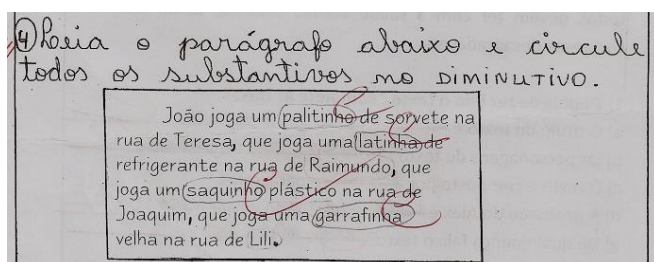 4) Leia o parágrafo abaixo e circule
todos os substantivos no DIMINUTIVO.
João joga um palitinho de sorvete na
rua de Teresa, que joga uma latinha de
refrigerante na rua de Raimundo, que
joga um saquinho plástico na rua de
Joaquim, que joga uma garrafinha
velha na rua de Lili.